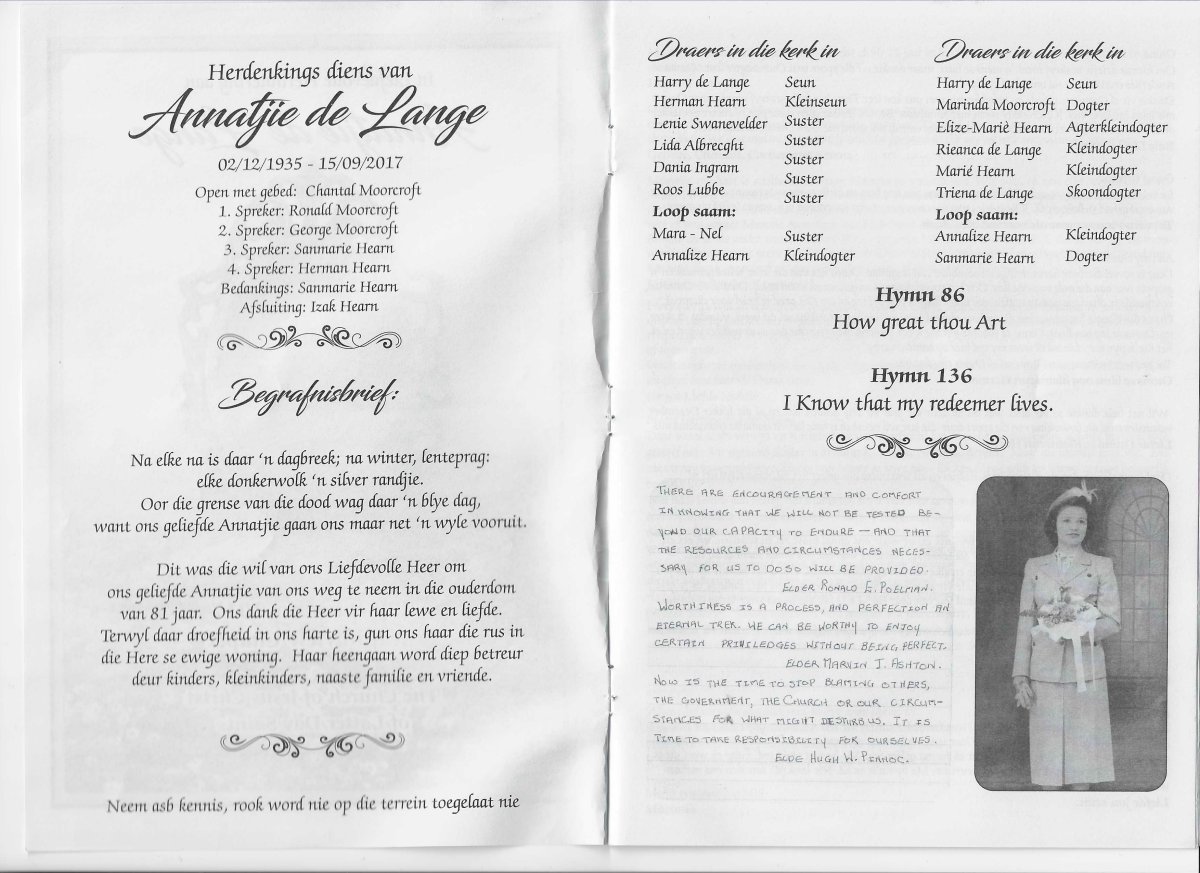 Herdenkings diens van
Annatjie de Lange
02/12/1935 - 15/09/2017
Open met gebed: Chantal Moorcroft
1. Spreker: Ronald Moorcroft
2. Spreker: George Moorcroft
3. Spreker: Sanmarie Hearn
4. Spreker: Herman Hearn
Bedankings: Sanmarie Hearn
Afsluiting: Izak Hearn
Begrafnisbrief:
Na elke na is daar ‘n dagbreek; na winter, lenteprag:
elke donkerwolk ‘n silver randjie.
Oor die grense van die dood wag daar ‘n blye dag,
want ons geliefde Annatjie gaan ons maar net ‘n wyle vooruit.
Dit was die wil van ons Liefdevolle Heer om
ons geliefde Annatjie van ons weg te neem in die ouderdom
van 81 jaar. Ons dank die Heer vir haar lewe en liefde.
Terwyl daar droefheid in ons harte is, gun ons haar die rus in
die Here se ewige woning. Haar heengaan word diep betreur
deur kinders, kleinkinders, naaste familie en vriende.
Neem asb kennis, rook word nie op die terrein toegelaat nie
Draers in die kerk in
Harry de Lange Seun
Herman Hearn Kleinseun
Lenie Swanevelder Suster
Lida Albrecght Suster
Dania Ingram Suster
Roos Lubbe Suster
Suster
Loop saam:
Mara - Nel Suster
Annalize Hearn Kleindogter
Draers in die kerk in
Harry de Lange Seun
Marinda Moorcroft Dogter
Elize-Mariè Hearn Agterkleindogter
Rieanca de Lange Kleindogter
Marié Hearn Kleindogter
Triena de Lange Skoondogter
Loop saam:
Annalize Hearn Kleindogter
Sanmarie Hearn Dogter
Hymn 86
How great thou Art
Hymn 136
I Know that my redeemer lives.
THERE ARE ENCOURAGEMENT AND COMFORT
IN KNOWING THAT WE WILL NOT BE TESTED BE-
YOND OUR CAPACITY TO ENDURE — AND THAT
THE RESOURCES AND CIRCUMSTANCES NECES-
SARY FOR US TO DO SO WILL BE PROVIDED.
ELDER RONALD E. POELMAN.
WORTHINESS IS A PROCESS, AND PERFECTION AN
ETERNAL TREK. WE CAN BE WORTHY TO ENJOY
CERTAIN PRIVILEDGES WITHOUT BEING PERFECT.
ELDER MARVIN J. ASHTON.
NOW IS THE TIME TO STOP BLAMING OTHERS,
THE GOVERNMENT, THE CHURCH OR OUR CIRCUM-
STANCES FOR WHAT MIGHT DESTURB US. IT IS
TIME TO TAKE RESPONSIBILITY FOR OURSELVES.
ELDE HUGH W.